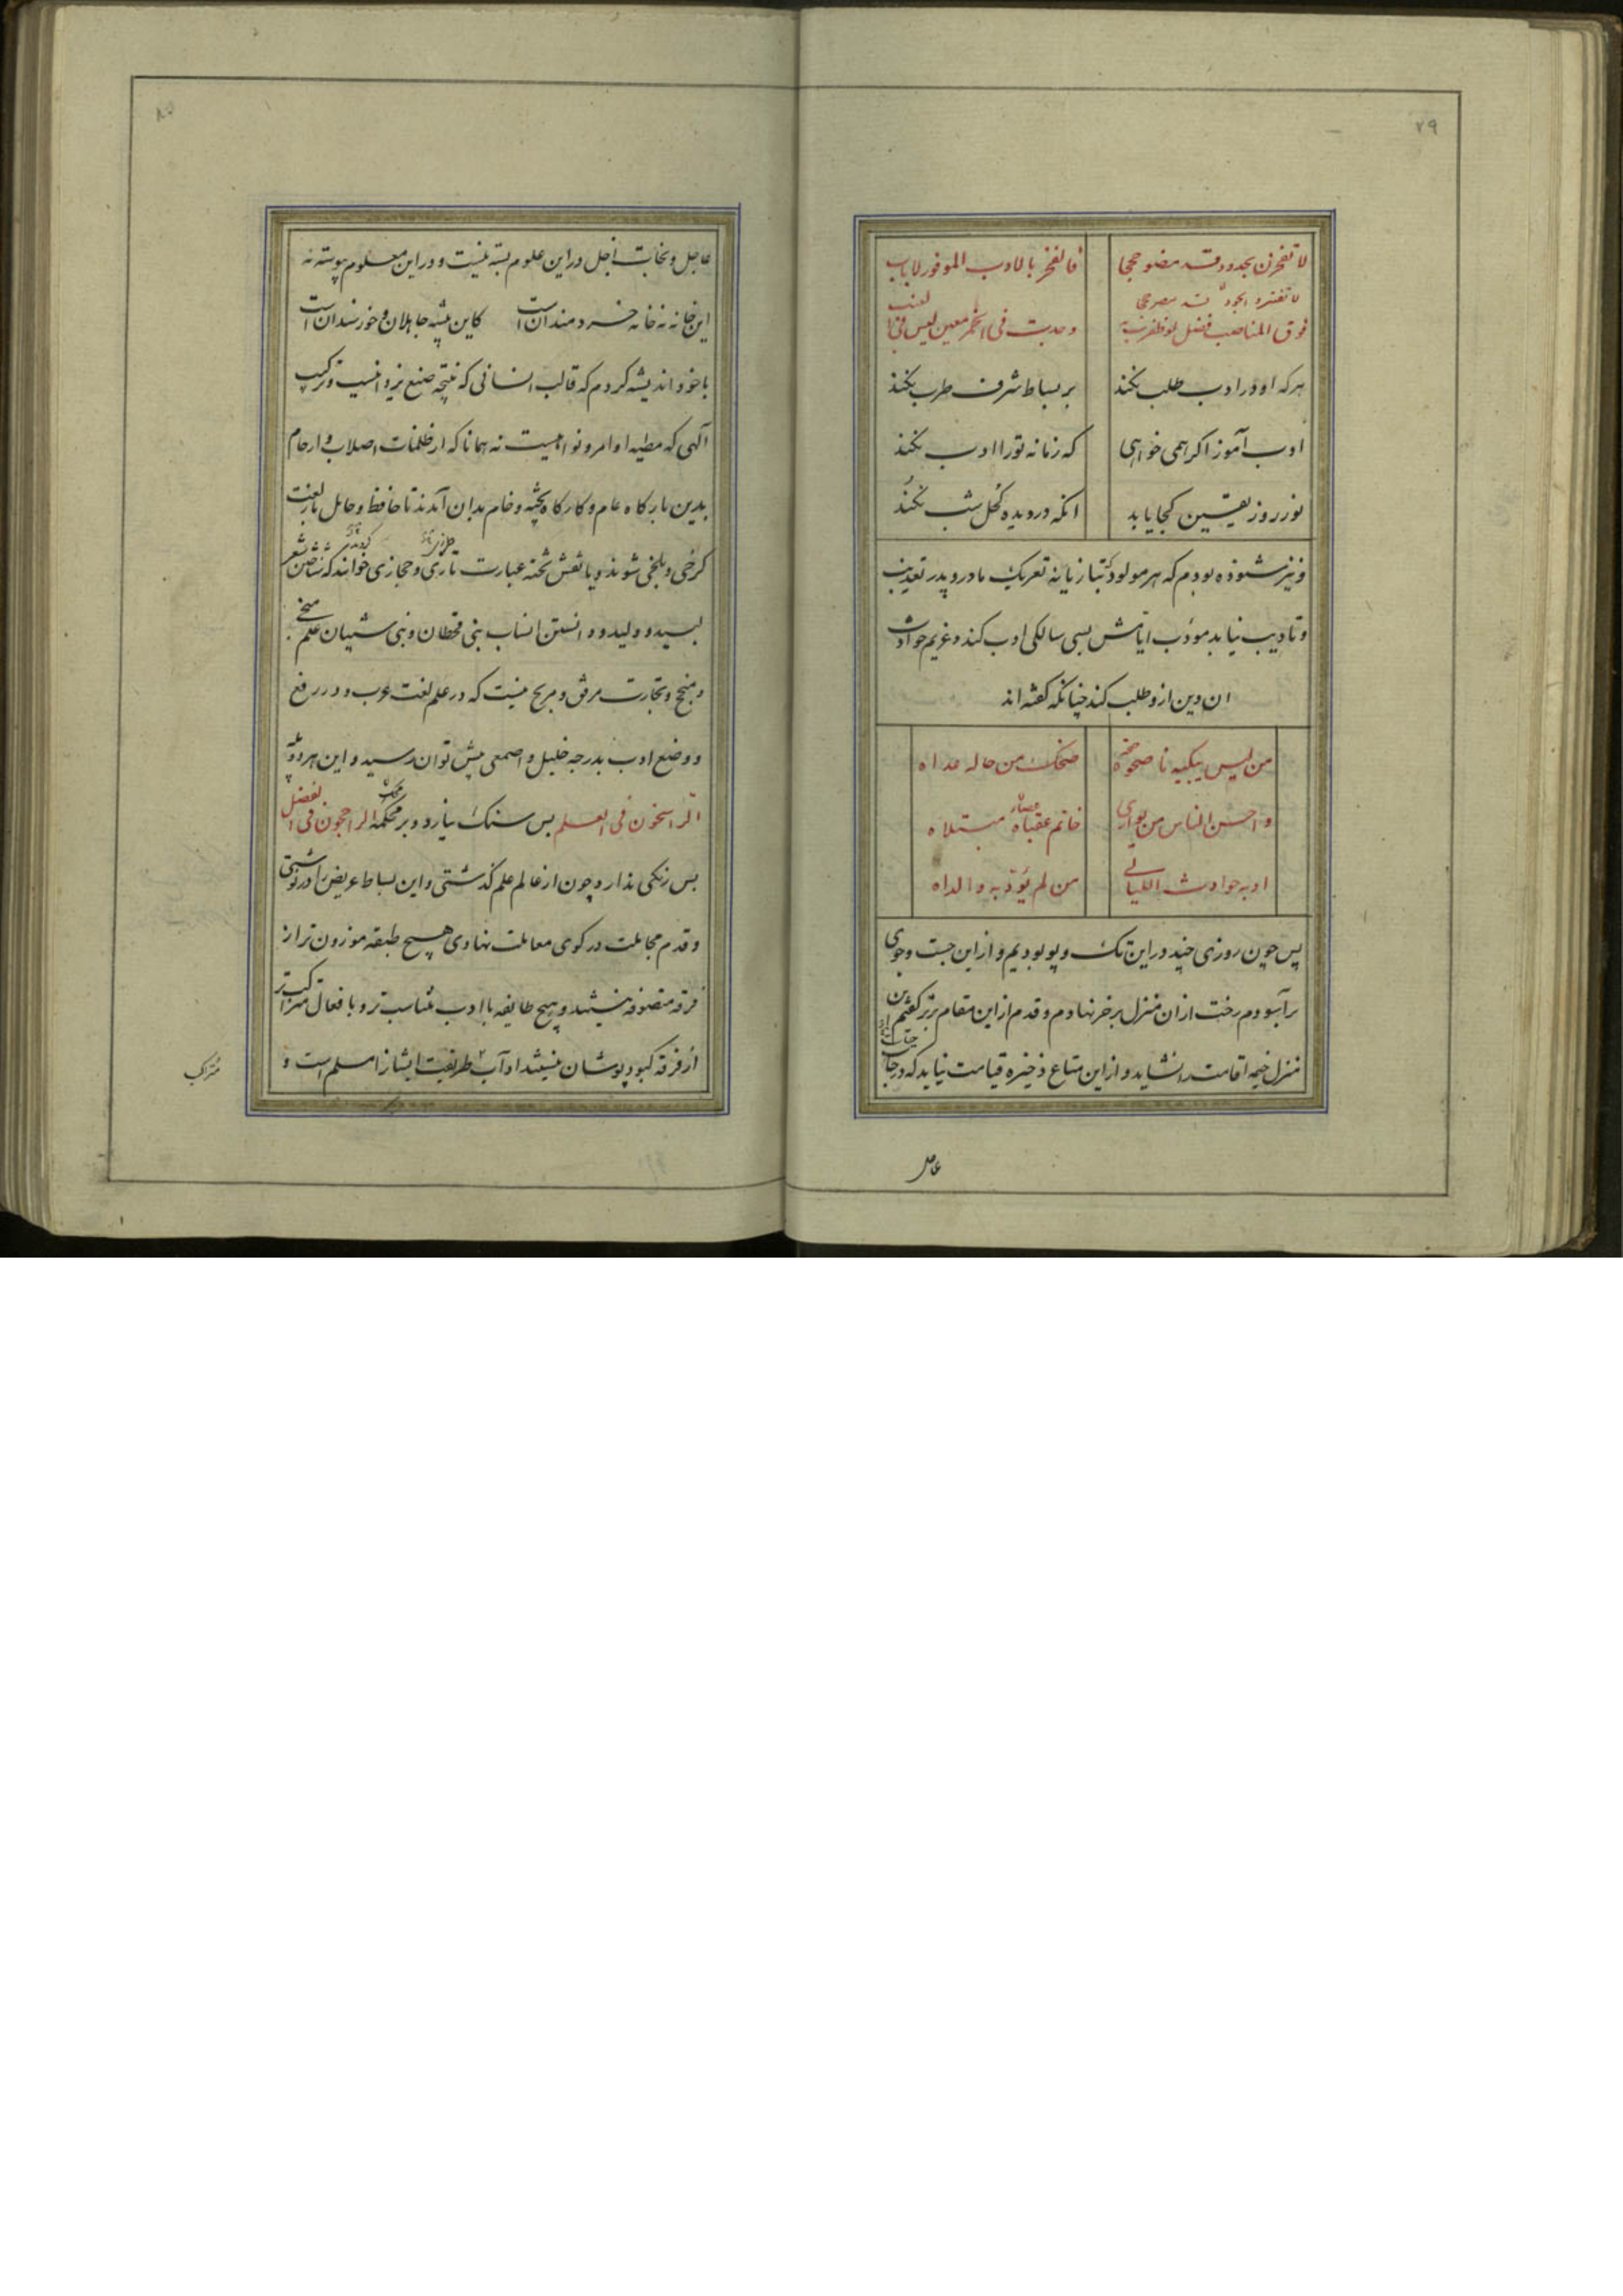 ۲۹
لا تفخرن بجدود قد مضو حججا فالفخر بالادب الموفور لا باب
فوق المناصب فضل لو ظفرت به وجدت فی الخمر معنی لیس فی العنب
هرکه او ورا ادب طلب نکند بر بساط شرف طرب نکند
ادب آموز اکر همی خواهی که زمانه تو را ادب نکند
نور روز یقین کجا یابد انکه در دیده کحل شب نکند
و نیز شنوده بودم که هر مولود که بتازیانه تعریک مادر و پدر تعذیب
و تادیب نیابد مودب ایامش بسی سالکی ادب کند و غریم حوادث
ان دین ازو طلب کند چنانکه کفته اند
من لیس یبکیه ناصحوه ضحک من حاله عداه
واحسن الناس من یواری خاتم عقباه مبتلاه
ادبه حوادث اللیالی من لم یؤدبه والداه
پس چون روزی چند در این تک و پو بودیم و از این جست و جوی
برآسودم رخت از ان منزل برخر نهادم و قدم از این مقام برتر کفتم این
منزل خیمه اقامت را نشاید و از این متاع ذخیره قیامت نیاید که درجات
عاجل
عاجل و نجات آجل در این علوم بسته نیست و در این معلوم پیوسته نه
این خانه نه خانه خردمندان است کاین پیشه جاهلان و خورسندان است
با خود اندیشه کردم که قالب انسانی که نتیجه صنع یزدانیست و ترکیب
آلهی که مطیه اوامر و نواهیست نه همانا که از ظلمات اصلاب و ارحام
بدین بارکاه عام و کارکاه پخته و خام بدان آمدند تا حافظ و حامل بار لغت
کرخی و بلخی شوند و یا نقش تخته عبارت تازی و حجازی خوانند که شناختن شعر
لبید و ولید و دانستن انساب بنی قحطان و بنی شیبان علم منجی
و منجح و تجارت مرفق و مربح نیست که در علم لغت عرب و در رفع
و وضع ادب بدرجه خلیل و اصمعی بیش توان رسید و این هر دو پله
الراسخون فی العلم بس سنک نیارد و بر محک الراجحون فی الفضل
بس رنکی ندارد و چون از عالم علم کذشتی و این بساط عریض را در نوشتی
و قدم مجاملت در کوی معاملت نهادی هیچ طبقه موزون تر از
فرقه متصوفه نیستند و هیچ طایفه با ادب متناسب تر و با فعال متراکب تر
از فرقه کبود پوشان نیستند آداب طریقت ایشانرا مسلم است و
متراکب